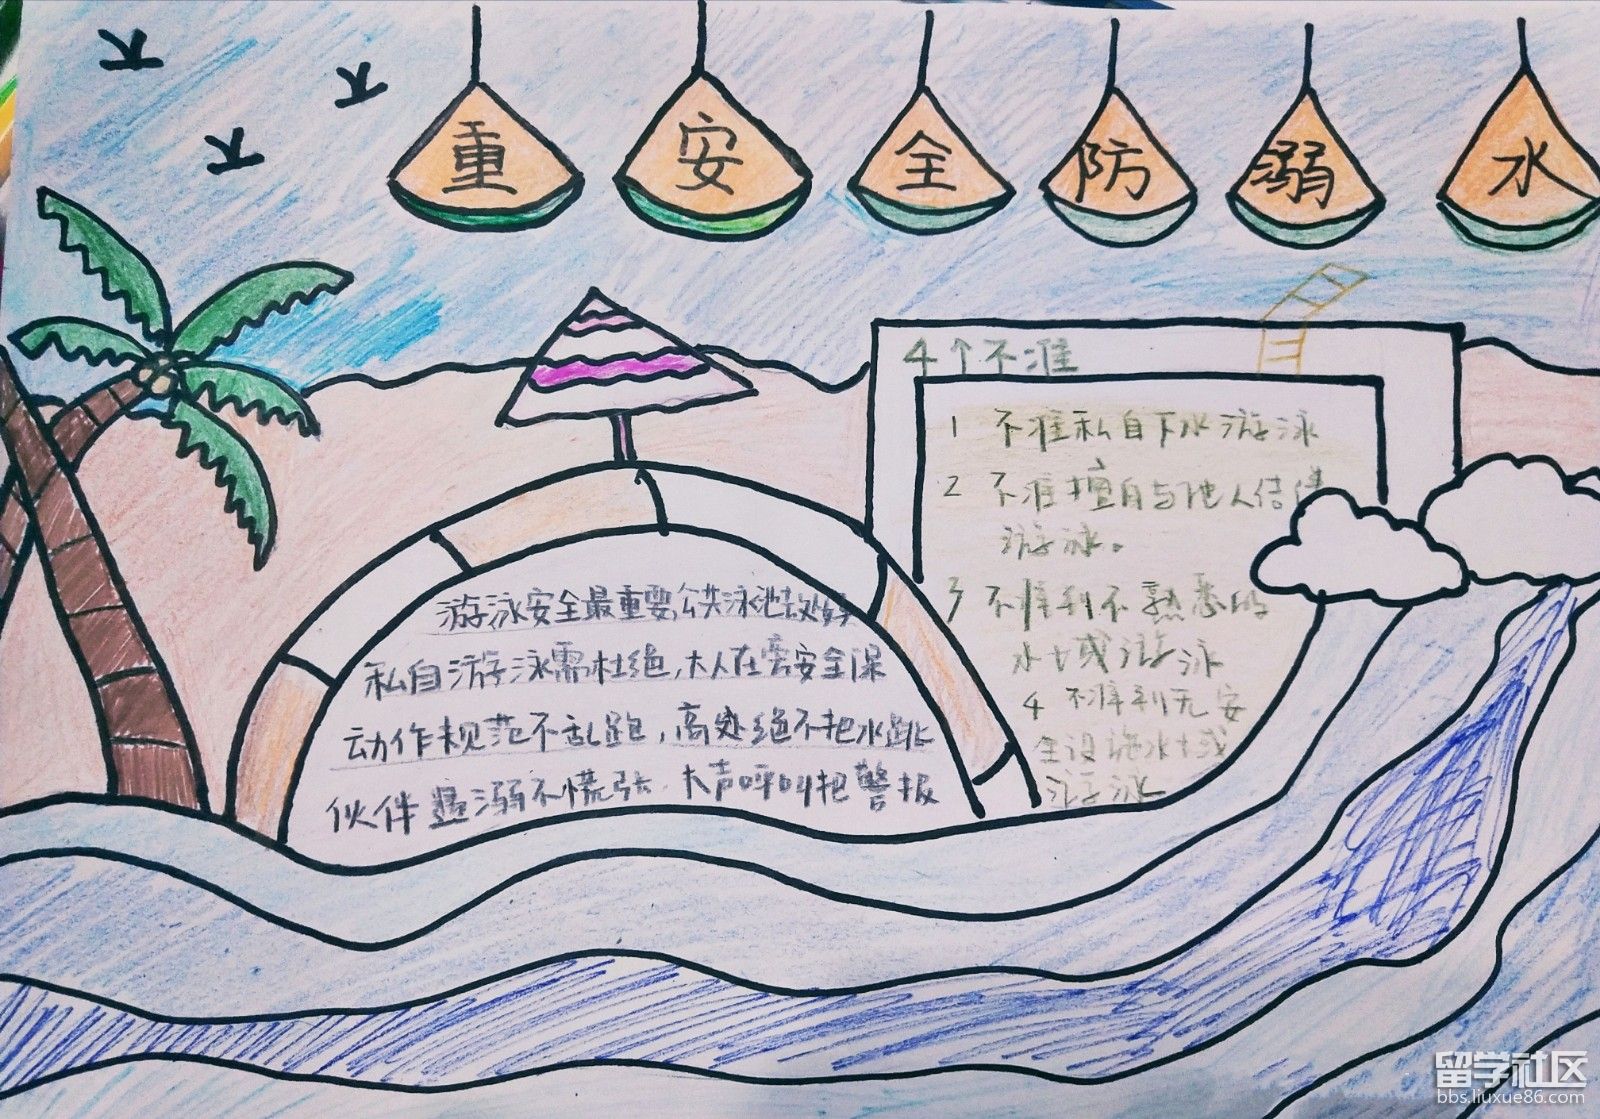 重安全防溺水
4个不准
1 不准私自下水游泳
2 不准擅自与他人结伴
游泳。
3 不准到不熟悉的
水域游泳
4 不准到无安
全设施水域
游泳
游泳安全最重要,公共泳池
私自游泳需杜绝,大人在旁安全保
动作规范不乱跑,高处绝不把水跳
伙伴遇溺不慌张,大声呼叫把警报
留学社区
bbs.liuxue86.com